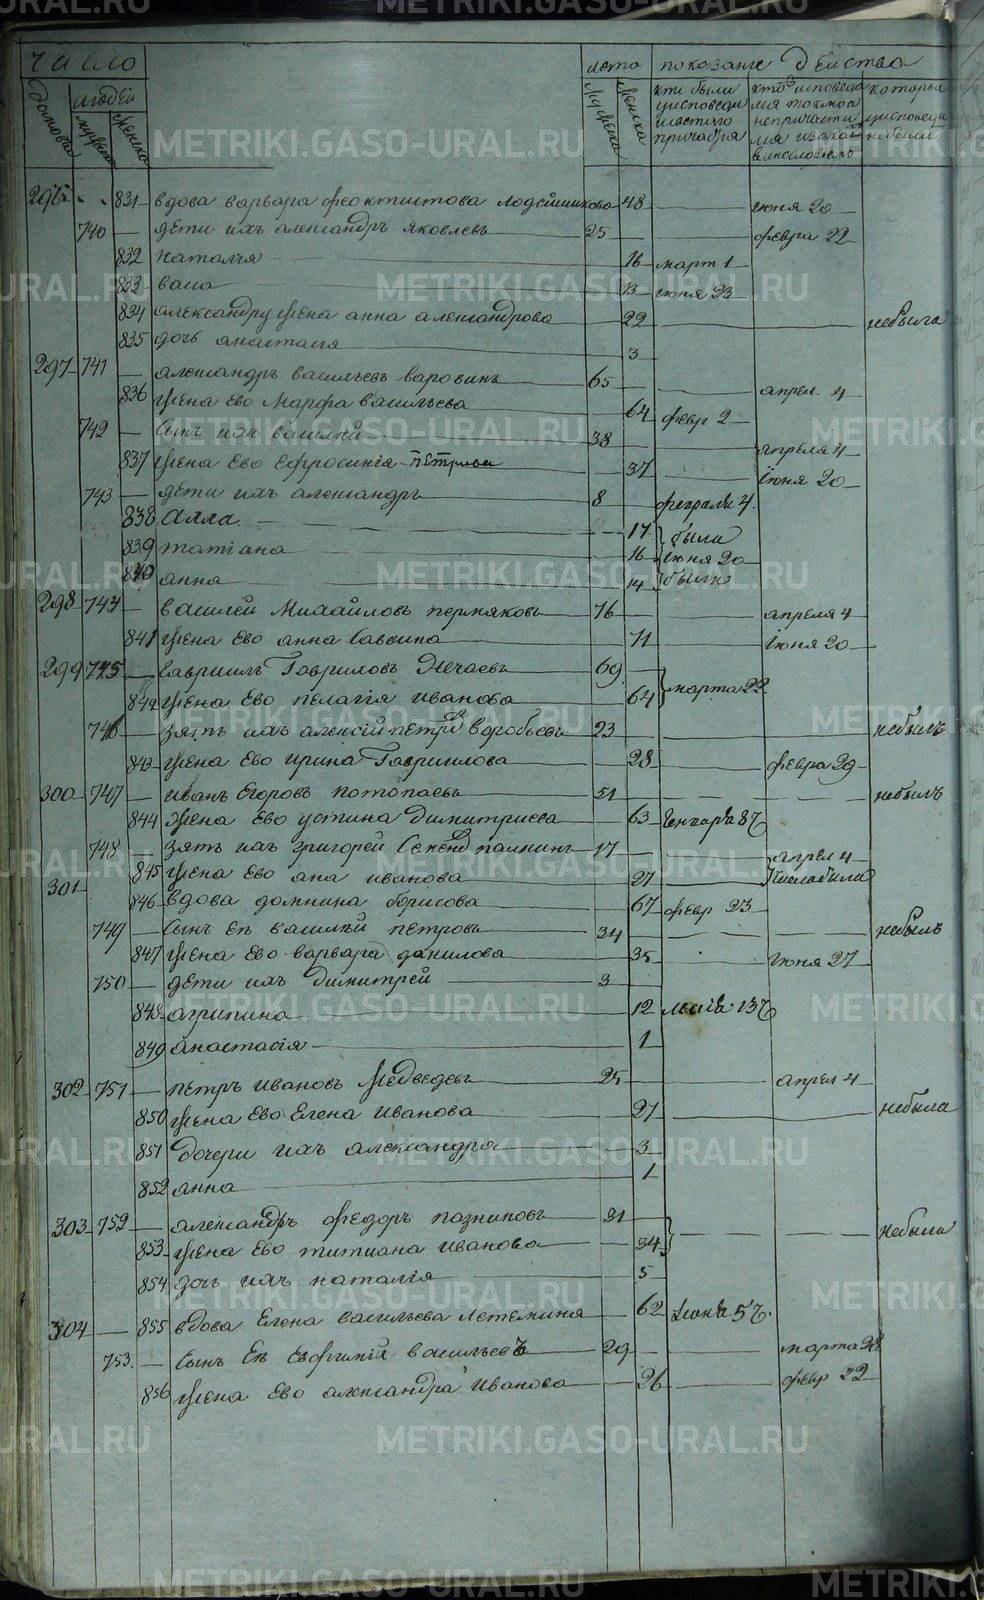 METRIKI.GASO-URAL.RU
число лета показание действа
домовъ людей мужска женска мужска женска
кти были уисповеди исвятаго причастія
кто исповеда
которыя уисповеди небыли
296 831 вдова варвара феоктистова лодейшикова 48 іюня 20
740 дети ихъ александръ яковлевъ 25 февра 22
832 наталія 16 март 1
833 васа 13 іюня 23
834 александру жена анна александрова 22 небыла
835 дочь анастасія 3
297 741 александръ васильевъ варовинъ 65 апрел. 4
836 жена ево Марфа васильева 64 февр 2
742 Сынъ ихъ василий 38 апреля 4
837 жена ево ефросинія петрова 37 іюня 20
743 дети ихъ александръ 8 февраля 4.
838 Алла 17 были
839 татіана 16 іюня 20
840 анна 14 были
298 744 василей Михайловъ пермяковъ 76 апреля 4
841 жена ево анна Савина 71 іюня 20
299 745 Гавриилъ Гавриловъ Нечаевъ 69 марта 22
842 жена ево пелагія иванова 64
746 зять ихъ алексій петровъ воробьевъ 23 небылъ
843 жена ево ирина Гавриилова 28 февра 29
300 747 иванъ Егоровъ потопаевъ 51 небылъ
844 жена ево устина Димитриева 63 Генваря 8
748 зять ихъ григорей Семенов палкинъ 17 апрел 4
845 жена ево ана иванова 27
301 846 вдова домнина борисова 67 февр 23
749 Сынъ ея василий петровъ 34 небылъ
847 жена ево варвара данилова 35 іюня 27
750 дети ихъ димитрей 3
848 агрипина 12 маія 13
849 анастасія 1
302 751 петръ ивановъ Медведевъ 25 апрел 4
850 жена ево Елена иванова 27 небыла
851 дочери ихъ александра 3
852 анна 1
303 752 александръ федоръ пазниковъ 31 небыли
853 жена ево татиана иванова 34
854 дочь ихъ наталія 5
304 855 вдова Елена васильева летемина 62 іюня 5
753. Сынъ ея Евфимій васильевъ 29 марта 28
856 жена ево александра иванова 26 февр 22